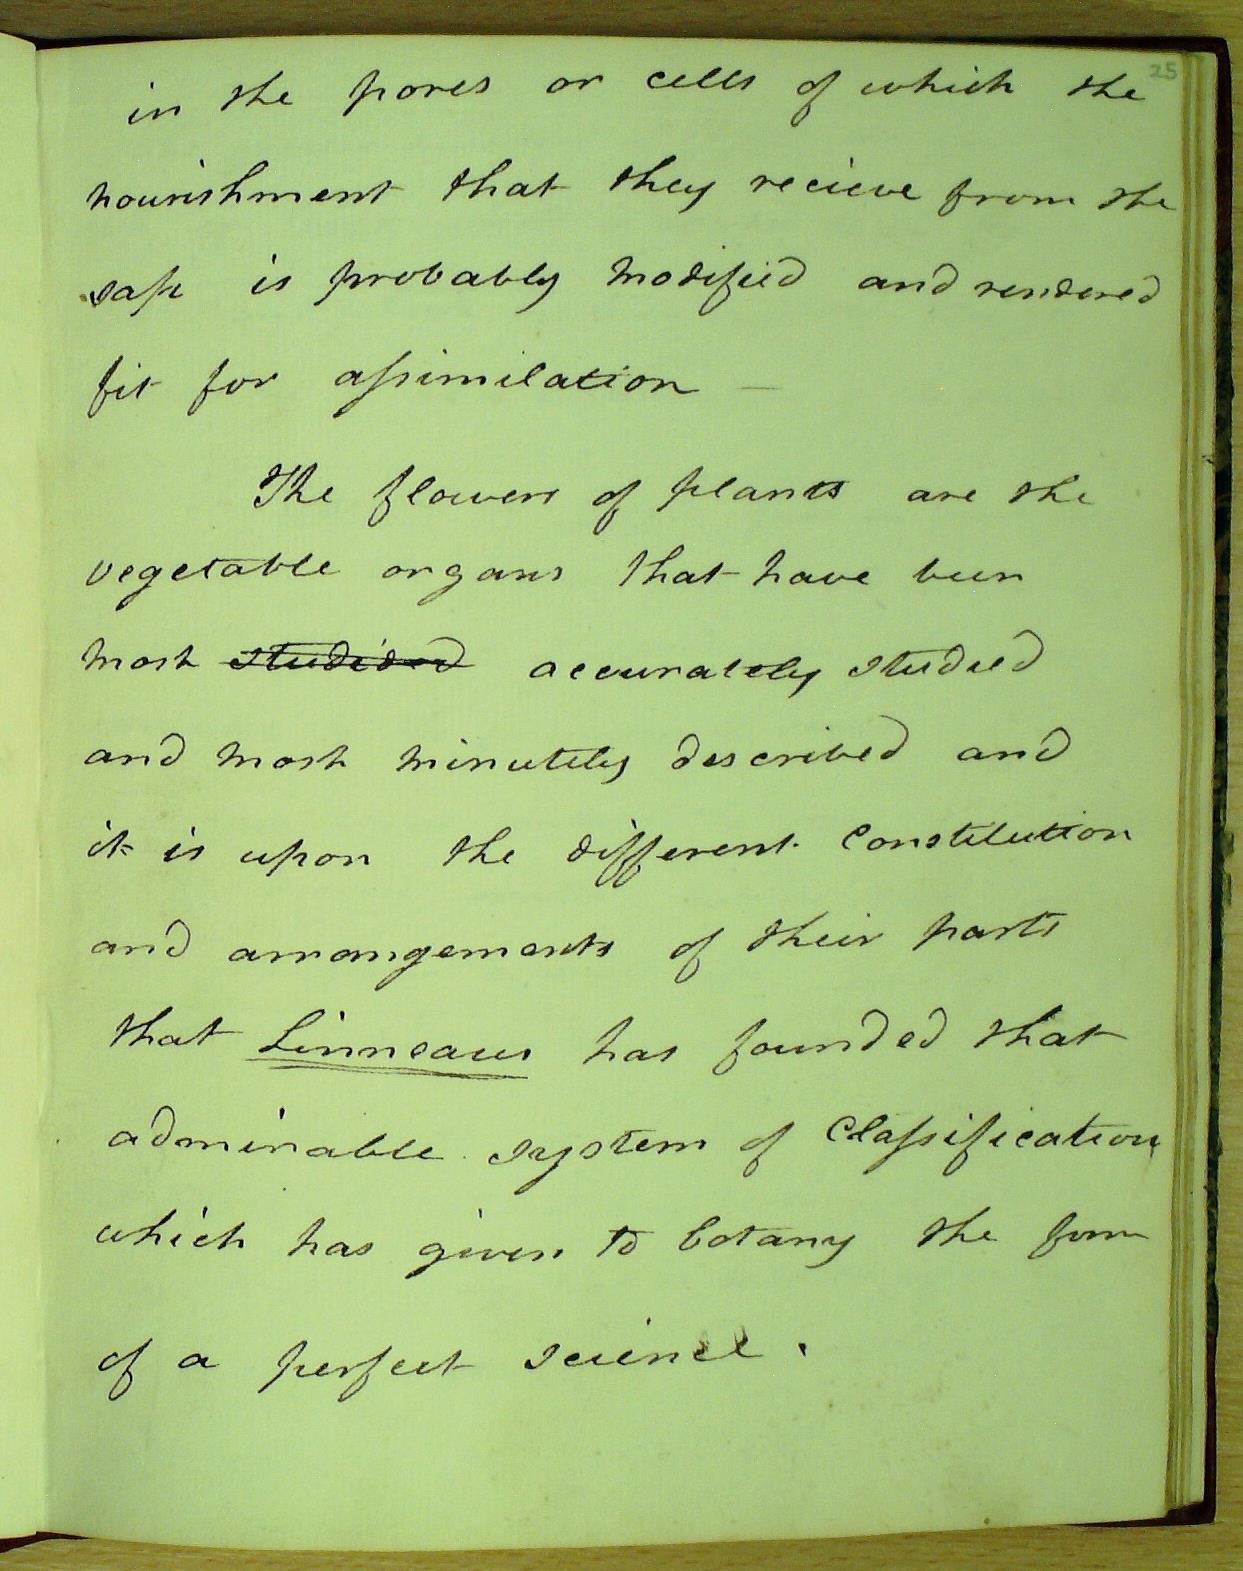 25
in the pores or cells of which the
nourishment that they recieve from the
sap is probably modified and rendered
fit for assimilation —
The flowers of plants are the
vegetable organs that have been
most accurately studied
and most minutely described and
it is upon the different constitution
and arrangements of their parts
that Linneaus has founded that
admirable system of Classification
which has given to botany the form
of a perfect science.